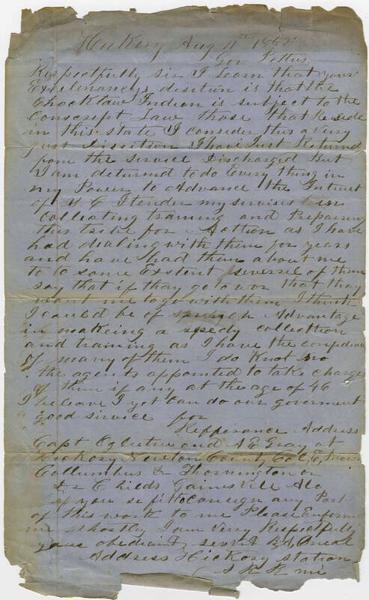 Hickory Aug 11th 1862
Gov Pettus
Respectfully sir I Learn that your
Exelinancys desision is that the
Chocktaw Indion is subject to the
Conscript Law those that Reside
in this state I consider this a very
just Dissition I have Just Returned
from the Service Discharged But
I am deturned to do Every thing in
my Power to Advance the Intrest
of I tender my services in
Collecting training and Preparing
this tribe for Action as I have
had dealing with them for years
and have had them about me
to some Extent several of them
say that if thay go to war that thay
want me to go with them I think
I could be of Advantage
in makeing a speedy collection
and training as I have the confidence
of many of them I do Know
the agents appointed to take charge
of them if any at the age of 46
I beleave I yet can do our goverment
good service for
Refferance Address
Capt and S B Gray at
Hickory Newton County
Collumbus & Thornington
Childs Gainesvill Ala
if you se fit to consign any Part
of this work to me Please inform
me shortly I am Very Respectfully
your obediant servt
Address Hickory station
S R R mi